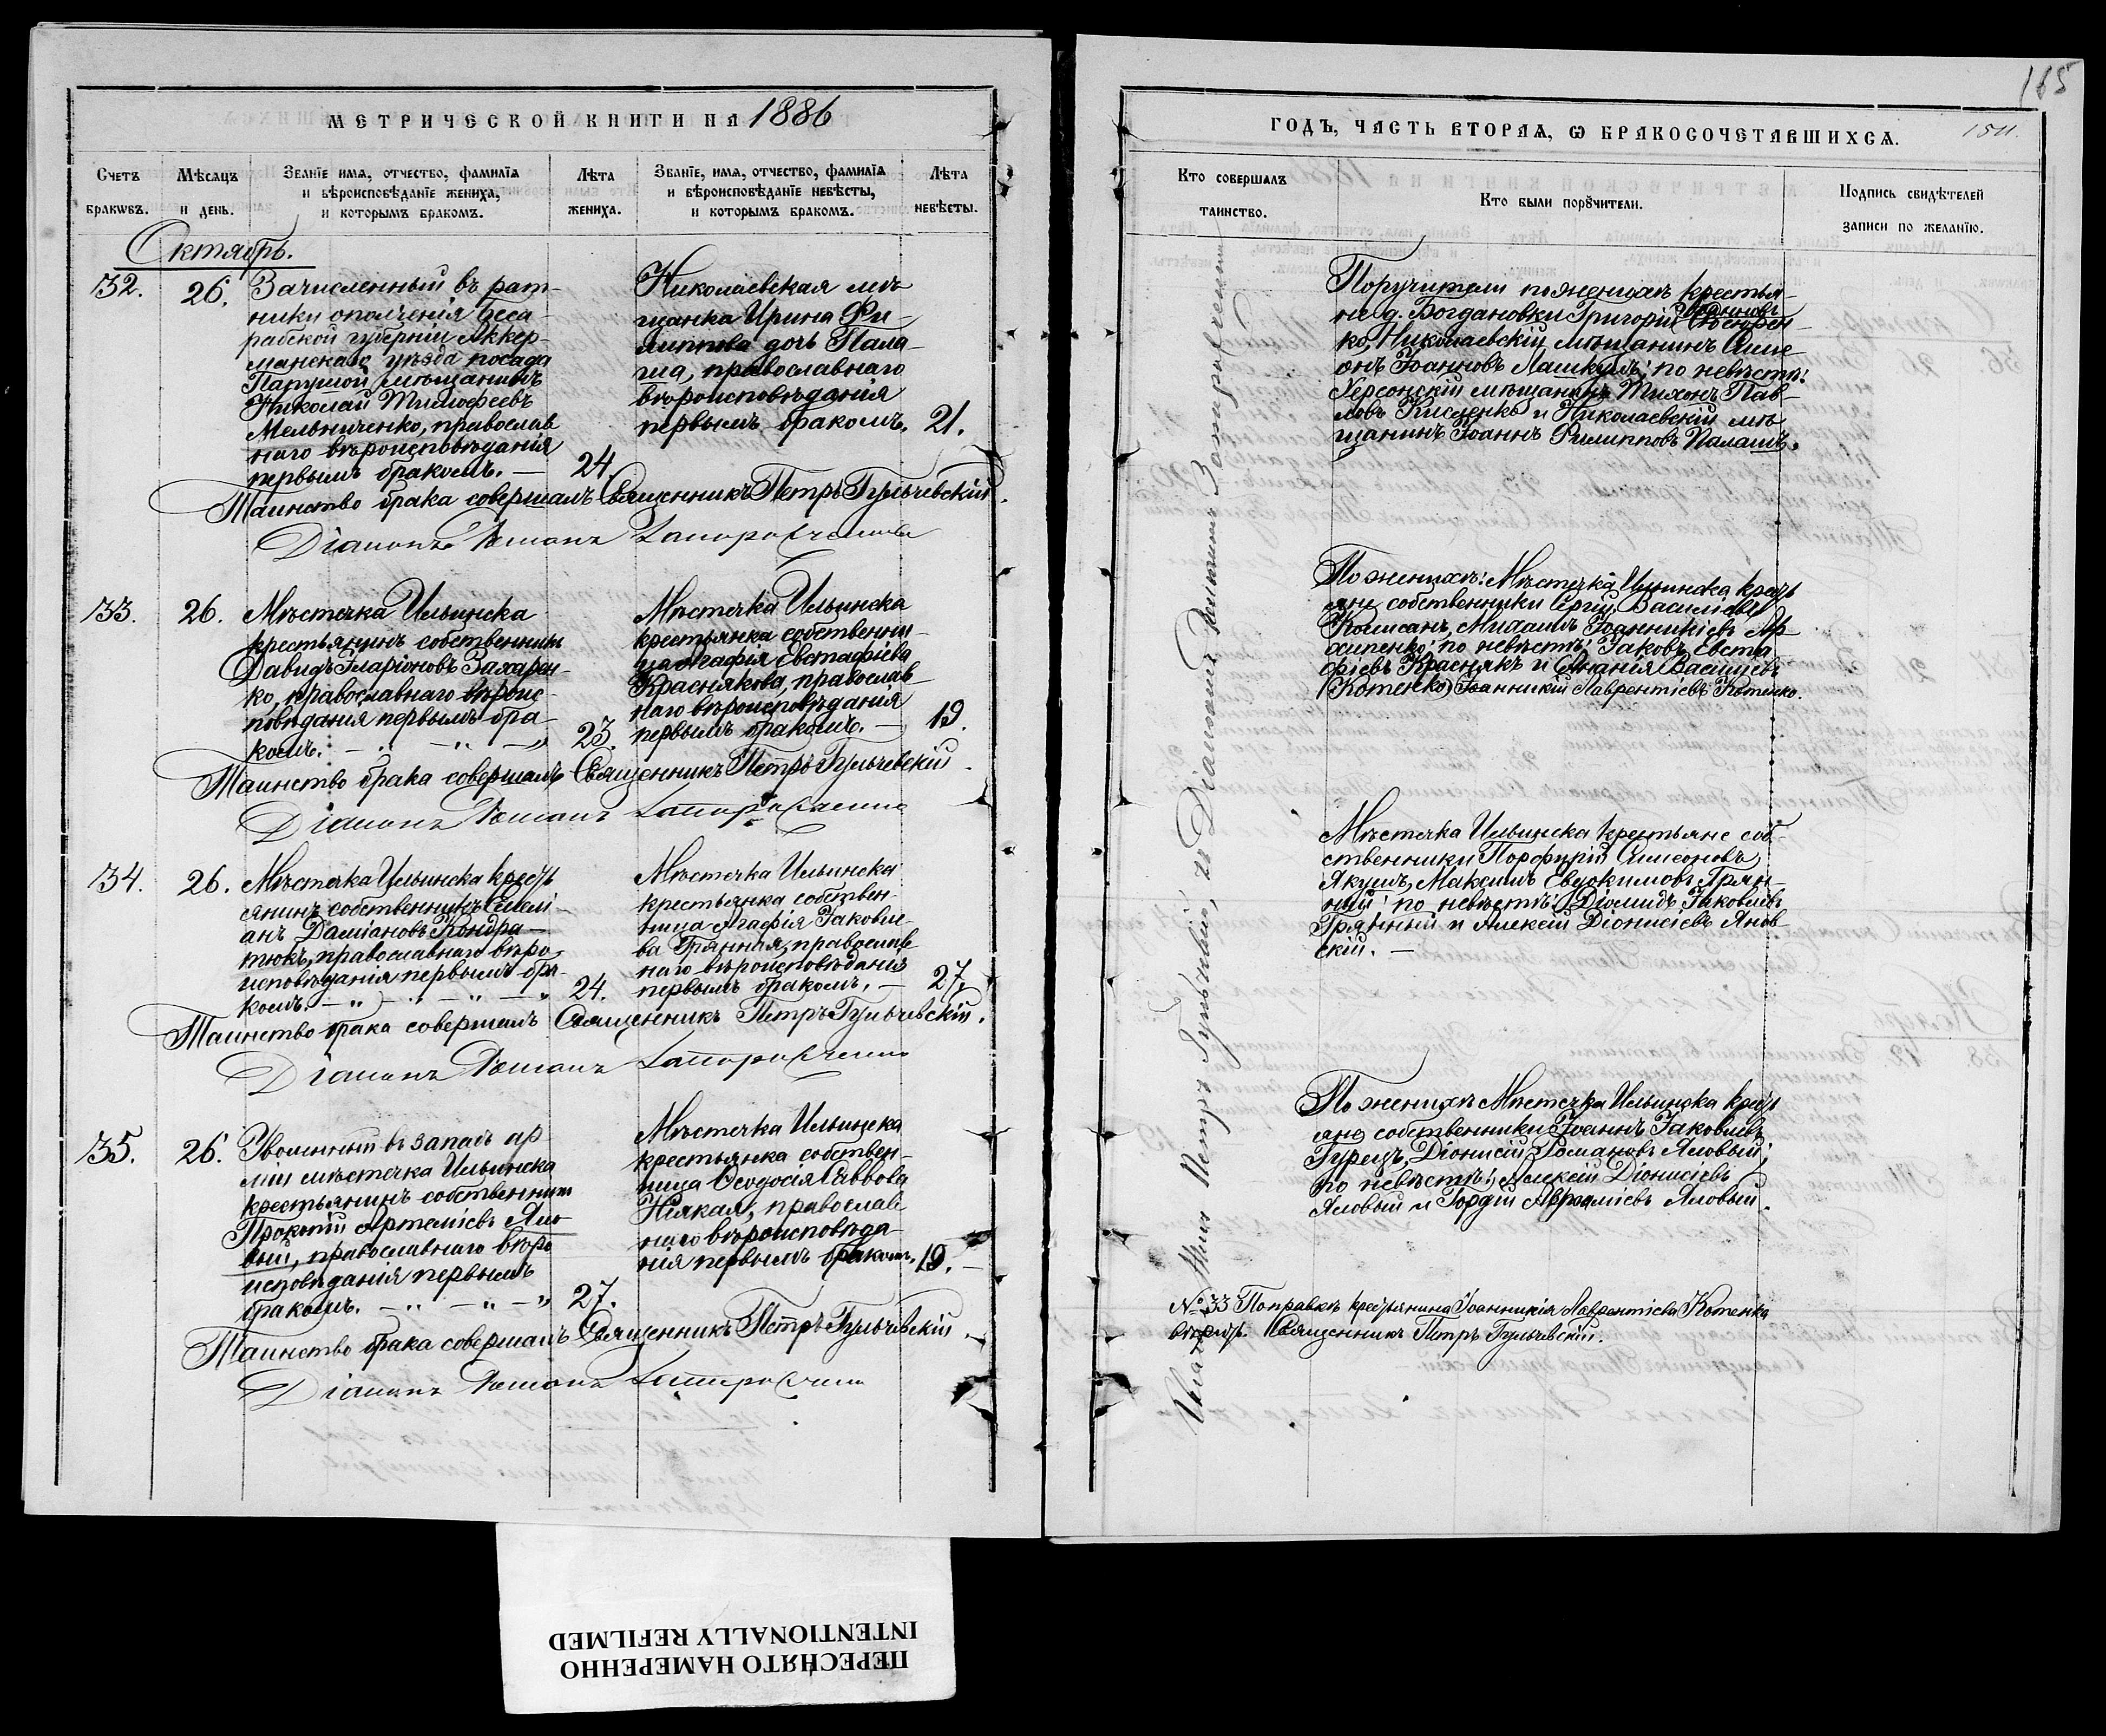 МЕТРИЧЕСКОЙ КНИГИ НА 1886
Счетъ браковъ.
Мѣсяцъ и день.
Званїе имя, отчество, фамилїя
и вѣроисповѣданїе жениха,
и которымъ бракомъ.
Лѣта жениха.
Званїе, имя, отчество, фамилїя
и вѣроисповѣданїе невѣсты,
и которымъ бракомъ.
Лѣта невѣсты.
Октябрь.
32.
26.
Зачисленный въ рат-
ники ополченія Беса-
рабской губерніи Аккер-
манскаго уѣзда посада
мѣщанинъ
Николай Тимофеевъ
Мельниченко, православ
наго вѣроисповѣданія
первымъ бракомъ. —
24.
Николаевская мѣ-
щанка Ирина Фи-
липпова дочь Пала-
православнаго
вѣроисповѣданія
первымъ бракомъ.
21.
Таинство брака совершалъ Священникъ Петръ Гульчевскій.
Діаконъ Романъ
33.
26.
Мѣстечка Ильинска
крестьянинъ собственникъ
Давидъ Иларіоновъ Захарен-
ко, православнаго вѣроис-
повѣданія первымъ бра-
комъ.
23.
Мѣстечка Ильинска
крестьянка собственни-
ца Агафія Евстафіева
Краснякова, православ-
наго вѣроисповѣданія
первымъ бракомъ. —
19.
Таинство брака совершалъ Священникъ Петръ Гульчевскій
Діаконъ Романъ
34.
26.
Мѣстечка Ильинска крестъ
янинъ собственникъ Емелі-
анъ Даміановъ Кондра-
тюкъ, православнаго вѣро-
исповѣданія первымъ бра-
комъ.
24.
Мѣстечка Ильинска
крестьянка собствен-
ница Агафія Іаковле-
ва Грянная, православ
наго вѣроисповѣданія
первымъ бракомъ, —
27.
Таинство брака совершалъ Священникъ Петръ Гульчевскій.
Діаконъ Романъ
35.
26.
Уволенный въ запасъ ар-
міи мѣстечка Ильинска
крестьянинъ собственникъ
Прокопій Артеміевъ Яло-
вый, православнаго вѣро
исповѣданія первымъ
бракомъ.
27.
Мѣстечка Ильинска
крестьянка собствен-
ница Ѳеодосія Саввова
православ
наго вѣроисповѣда-
нія первымъ бракомъ.
19.
Таинство брака совершалъ Священникъ Петръ Гульчевскій
Діаконъ Романъ
ПЕРЕСНЯТО НАМЕРЕННО
INTENTIONALLY REFILMED
165
ГОДЪ, ЧАСТЬ ВТОРАЯ, Ѡ БРАКОСОЧЕТАВШИХСЯ.
Кто совершалъ таинство.
Кто были порȣчители.
Подпись свидѣтелей
записи по желанїю.
Поручители по женихѣ крестья-
не д. Богдановки Григорій Іоанновъ
Николаевскій мѣщанинъ Симе-
онъ Іоанновъ по невѣстѣ:
Херсонскій мѣщанинъ Тихонъ Пав-
ловъ Кисленко и Николаевскій мѣ-
щанинъ Іоаннъ Филипповъ
По женихѣ: Мѣстечка Ильинска крестъ
яне собственники Сергій Василіевъ
Михаилъ Іоанникіевъ Ар-
хипенко; по невѣстѣ: Іаковъ Евста-
фіевъ Краснякъ и Ананія Василіевъ
(Котенко) Іоанникій Лаврентіевъ Котенко.
Мѣстечка Ильинска крестьяне соб-
ственники Порфирій Симеоновъ
Якушъ, Максимъ Евдокимовъ Грян-
ный; по невѣстѣ: Діомидъ Іаковлевъ
Грянный и Алексій Діонисіевъ Янов-
скій. —
По женихѣ Мѣстечка Ильинска крестъ
яне собственники Іоаннъ Іаковлевъ
Гурецъ, Діонисій Романовъ Яловый;
по невѣстѣ: Алексій Діонисіевъ
Яловый и Гордій Авраміевъ Яловый.
№ 33 Поправкѣ крестьянина Іоанникія Лаврентіева Котенка
вѣрить. Священникъ Петръ Гульчевскій.
Петръ Гульчевскій, и Діаконъ Романъ